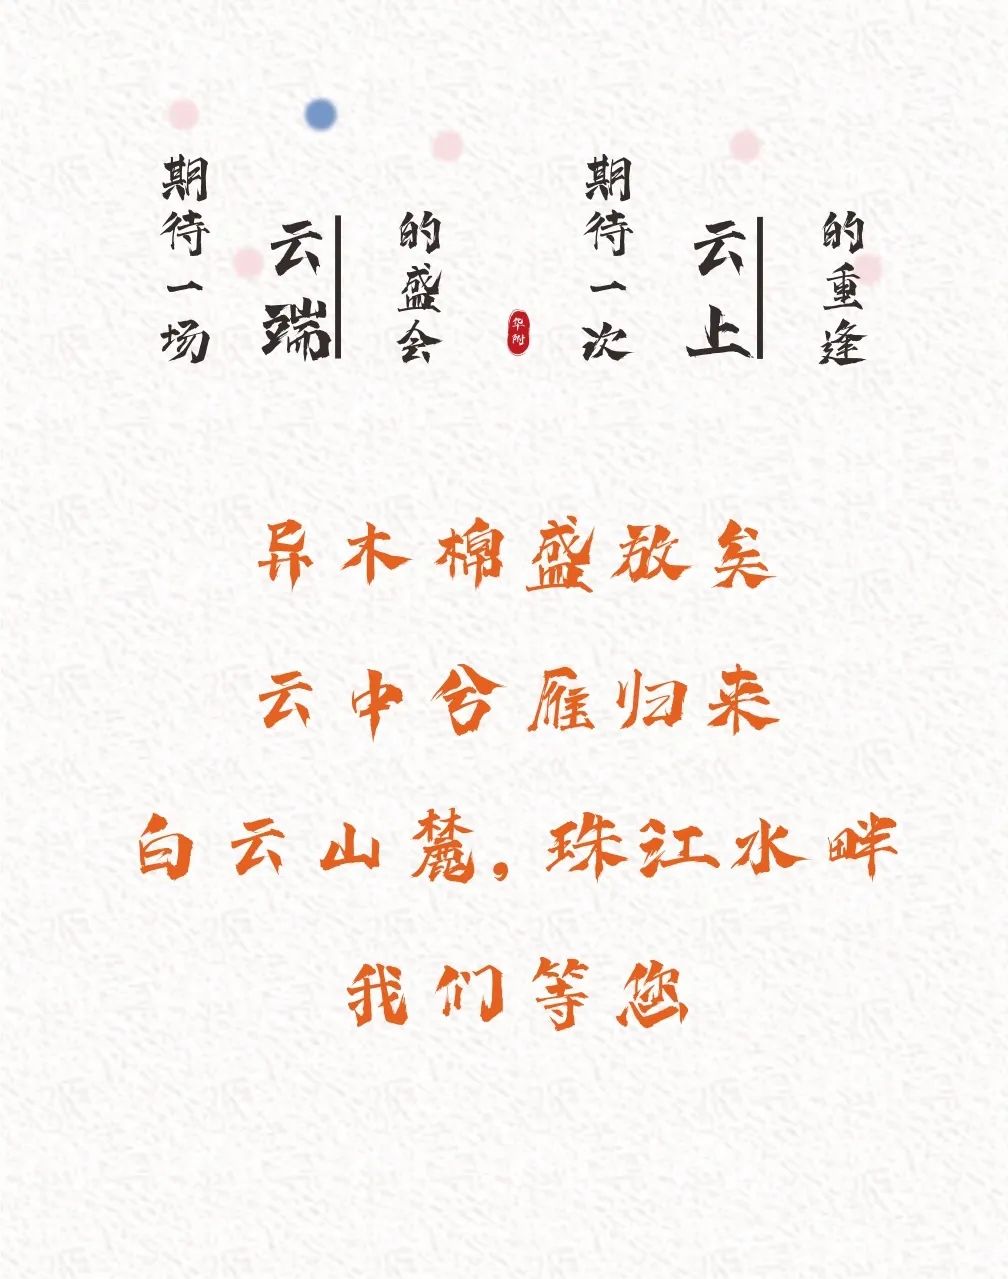 期待一场
云端
的盛会
华附
期待一次
云上
的重逢
异木棉盛放矣
云中兮雁归来
白云山麓，珠江水畔
我们等您